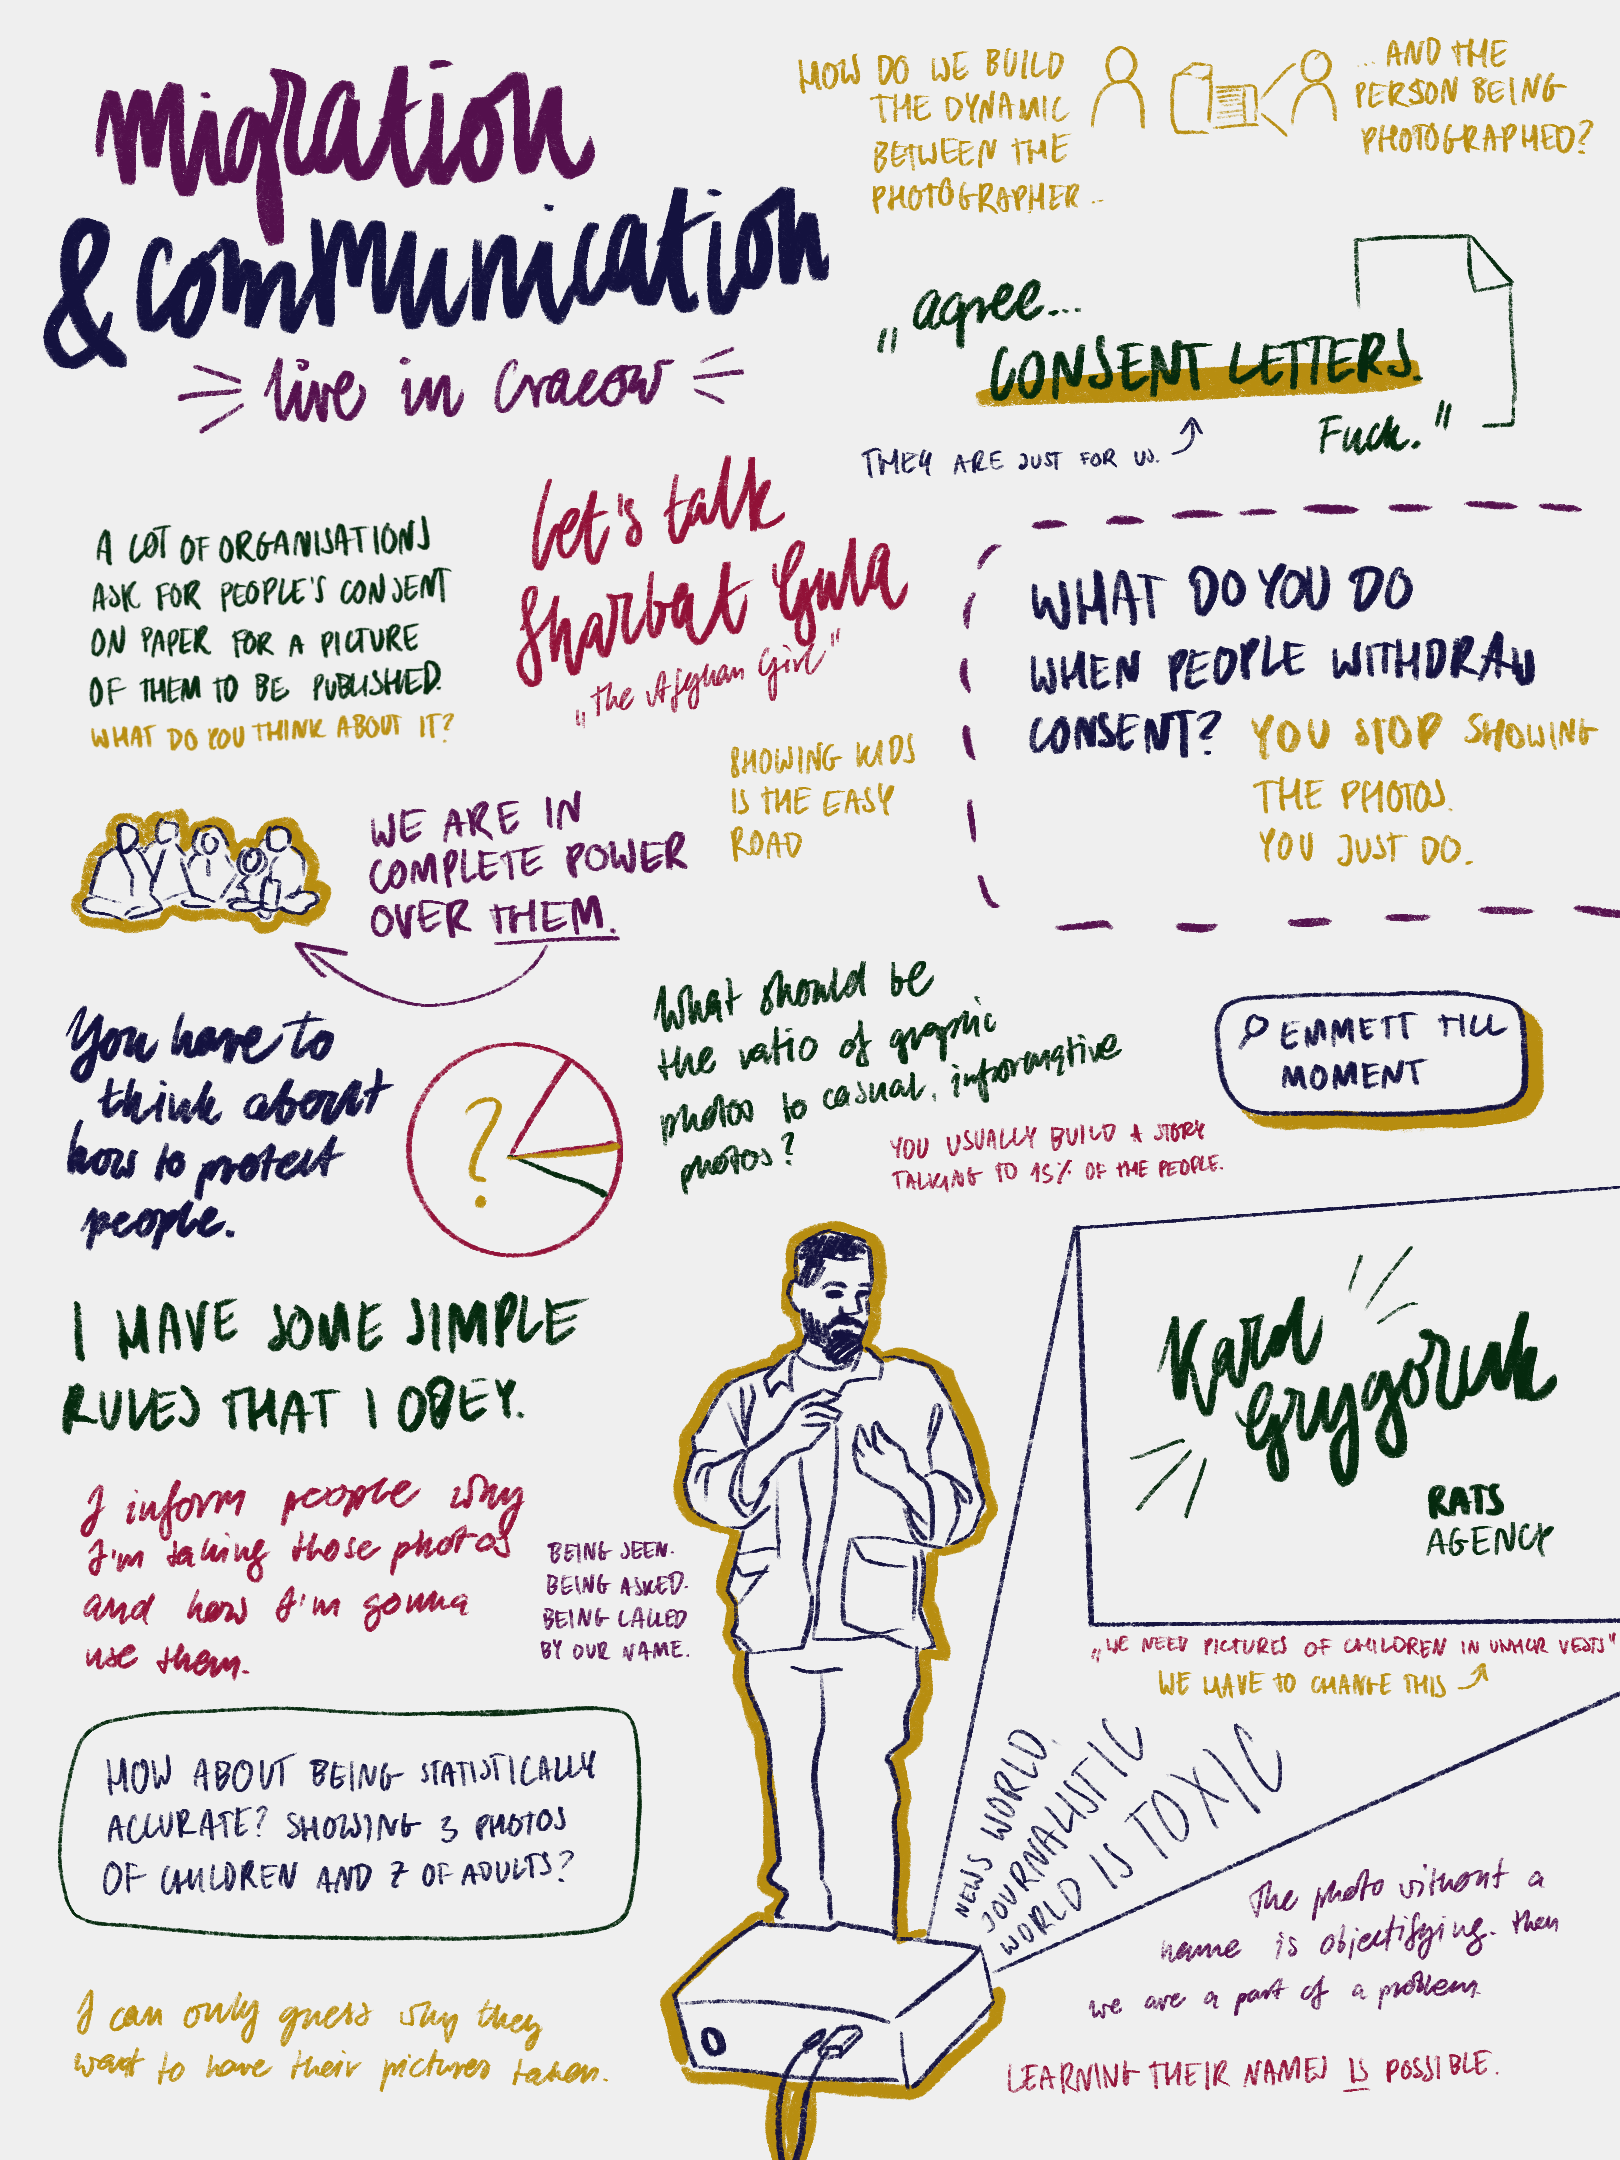 migration
& communication
live in Cracow
HOW DO WE BUILD
THE DYNAMIC
BETWEEN THE
PHOTOGRAPHER ..
... AND THE
PERSON BEING
PHOTOGRAPHED?
„agree...
CONSENT LETTERS.
Fuck."
THEY ARE JUST FOR US.
A LOT OF ORGANISATIONS
ASK FOR PEOPLE'S CONSENT
ON PAPER FOR A PICTURE
OF THEM TO BE PUBLISHED.
WHAT DO YOU THINK ABOUT IT?
Let's talk
Sharbat Gula
„the Afghan Girl"
SHOWING KIDS
IS THE EASY
ROAD
WHAT DO YOU DO
WHEN PEOPLE WITHDRAW
CONSENT? YOU STOP SHOWING
THE PHOTOS.
YOU JUST DO.
WE ARE IN
COMPLETE POWER
OVER THEM.
You have to
think about
how to protect
people.
?
What should be
the ratio of graphic
photos to casual, informative
photos?
YOU USUALLY BUILD A STORY
TALKING TO 15% OF THE PEOPLE.
EMMETT TILL
MOMENT
I HAVE SOME SIMPLE
RULES THAT I OBEY.
I inform people why
I'm taking those photos
and how I'm gonna
use them.
BEING SEEN.
BEING ASKED.
BEING CALLED
BY OUR NAME.
Karol
Grygoruk
RATS
AGENCY
„WE NEED PICTURES OF CHILDREN IN UNHCR VESTS"
WE HAVE TO CHANGE THIS
HOW ABOUT BEING STATISTICALLY
ACCURATE? SHOWING 3 PHOTOS
OF CHILDREN AND 7 OF ADULTS?
NEWS WORLD.
JOURNALISTIC
WORLD IS TOXIC
The photo without a
name is objectifying. Then
we are a part of a problem
I can only guess why they
want to have their pictures taken.
LEARNING THEIR NAMES IS POSSIBLE.